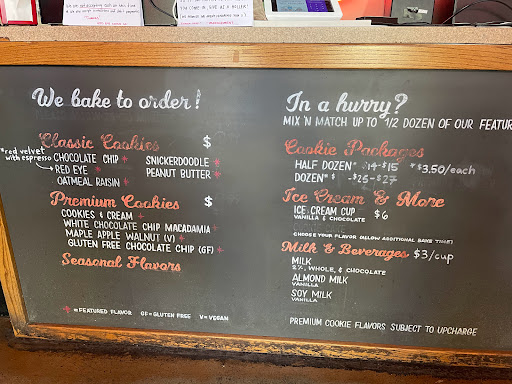 We bake to order!
Classic Cookies $
*red velvet with espresso
CHOCOLATE CHIP *
RED EYE *
OATMEAL RAISIN *
SNICKERDOODLE *
PEANUT BUTTER *
Premium Cookies $
COOKIES & CREAM *
WHITE CHOCOLATE CHIP MACADAMIA *
MAPLE APPLE WALNUT (V) *
GLUTEN FREE CHOCOLATE CHIP (GF) *
Seasonal Flavors
* = FEATURED FLAVOR GF = GLUTEN FREE V = VEGAN
In a hurry?
MIX 'N MATCH UP TO 1/2 DOZEN OF OUR FEATUR
Cookie Packages
HALF DOZEN* $14-$15 *$3.50/each
DOZEN* $ -$25-$27
Ice Cream & More
ICE CREAM CUP $6
VANILLA & CHOCOLATE
CHOOSE YOUR FLAVOR (ALLOW ADDITIONAL BAKE TIME)
Milk & Beverages $3/cup
MILK
2%, WHOLE, & CHOCOLATE
ALMOND MILK
VANILLA
SOY MILK
VANILLA
PREMIUM COOKIE FLAVORS SUBJECT TO UPCHARGE